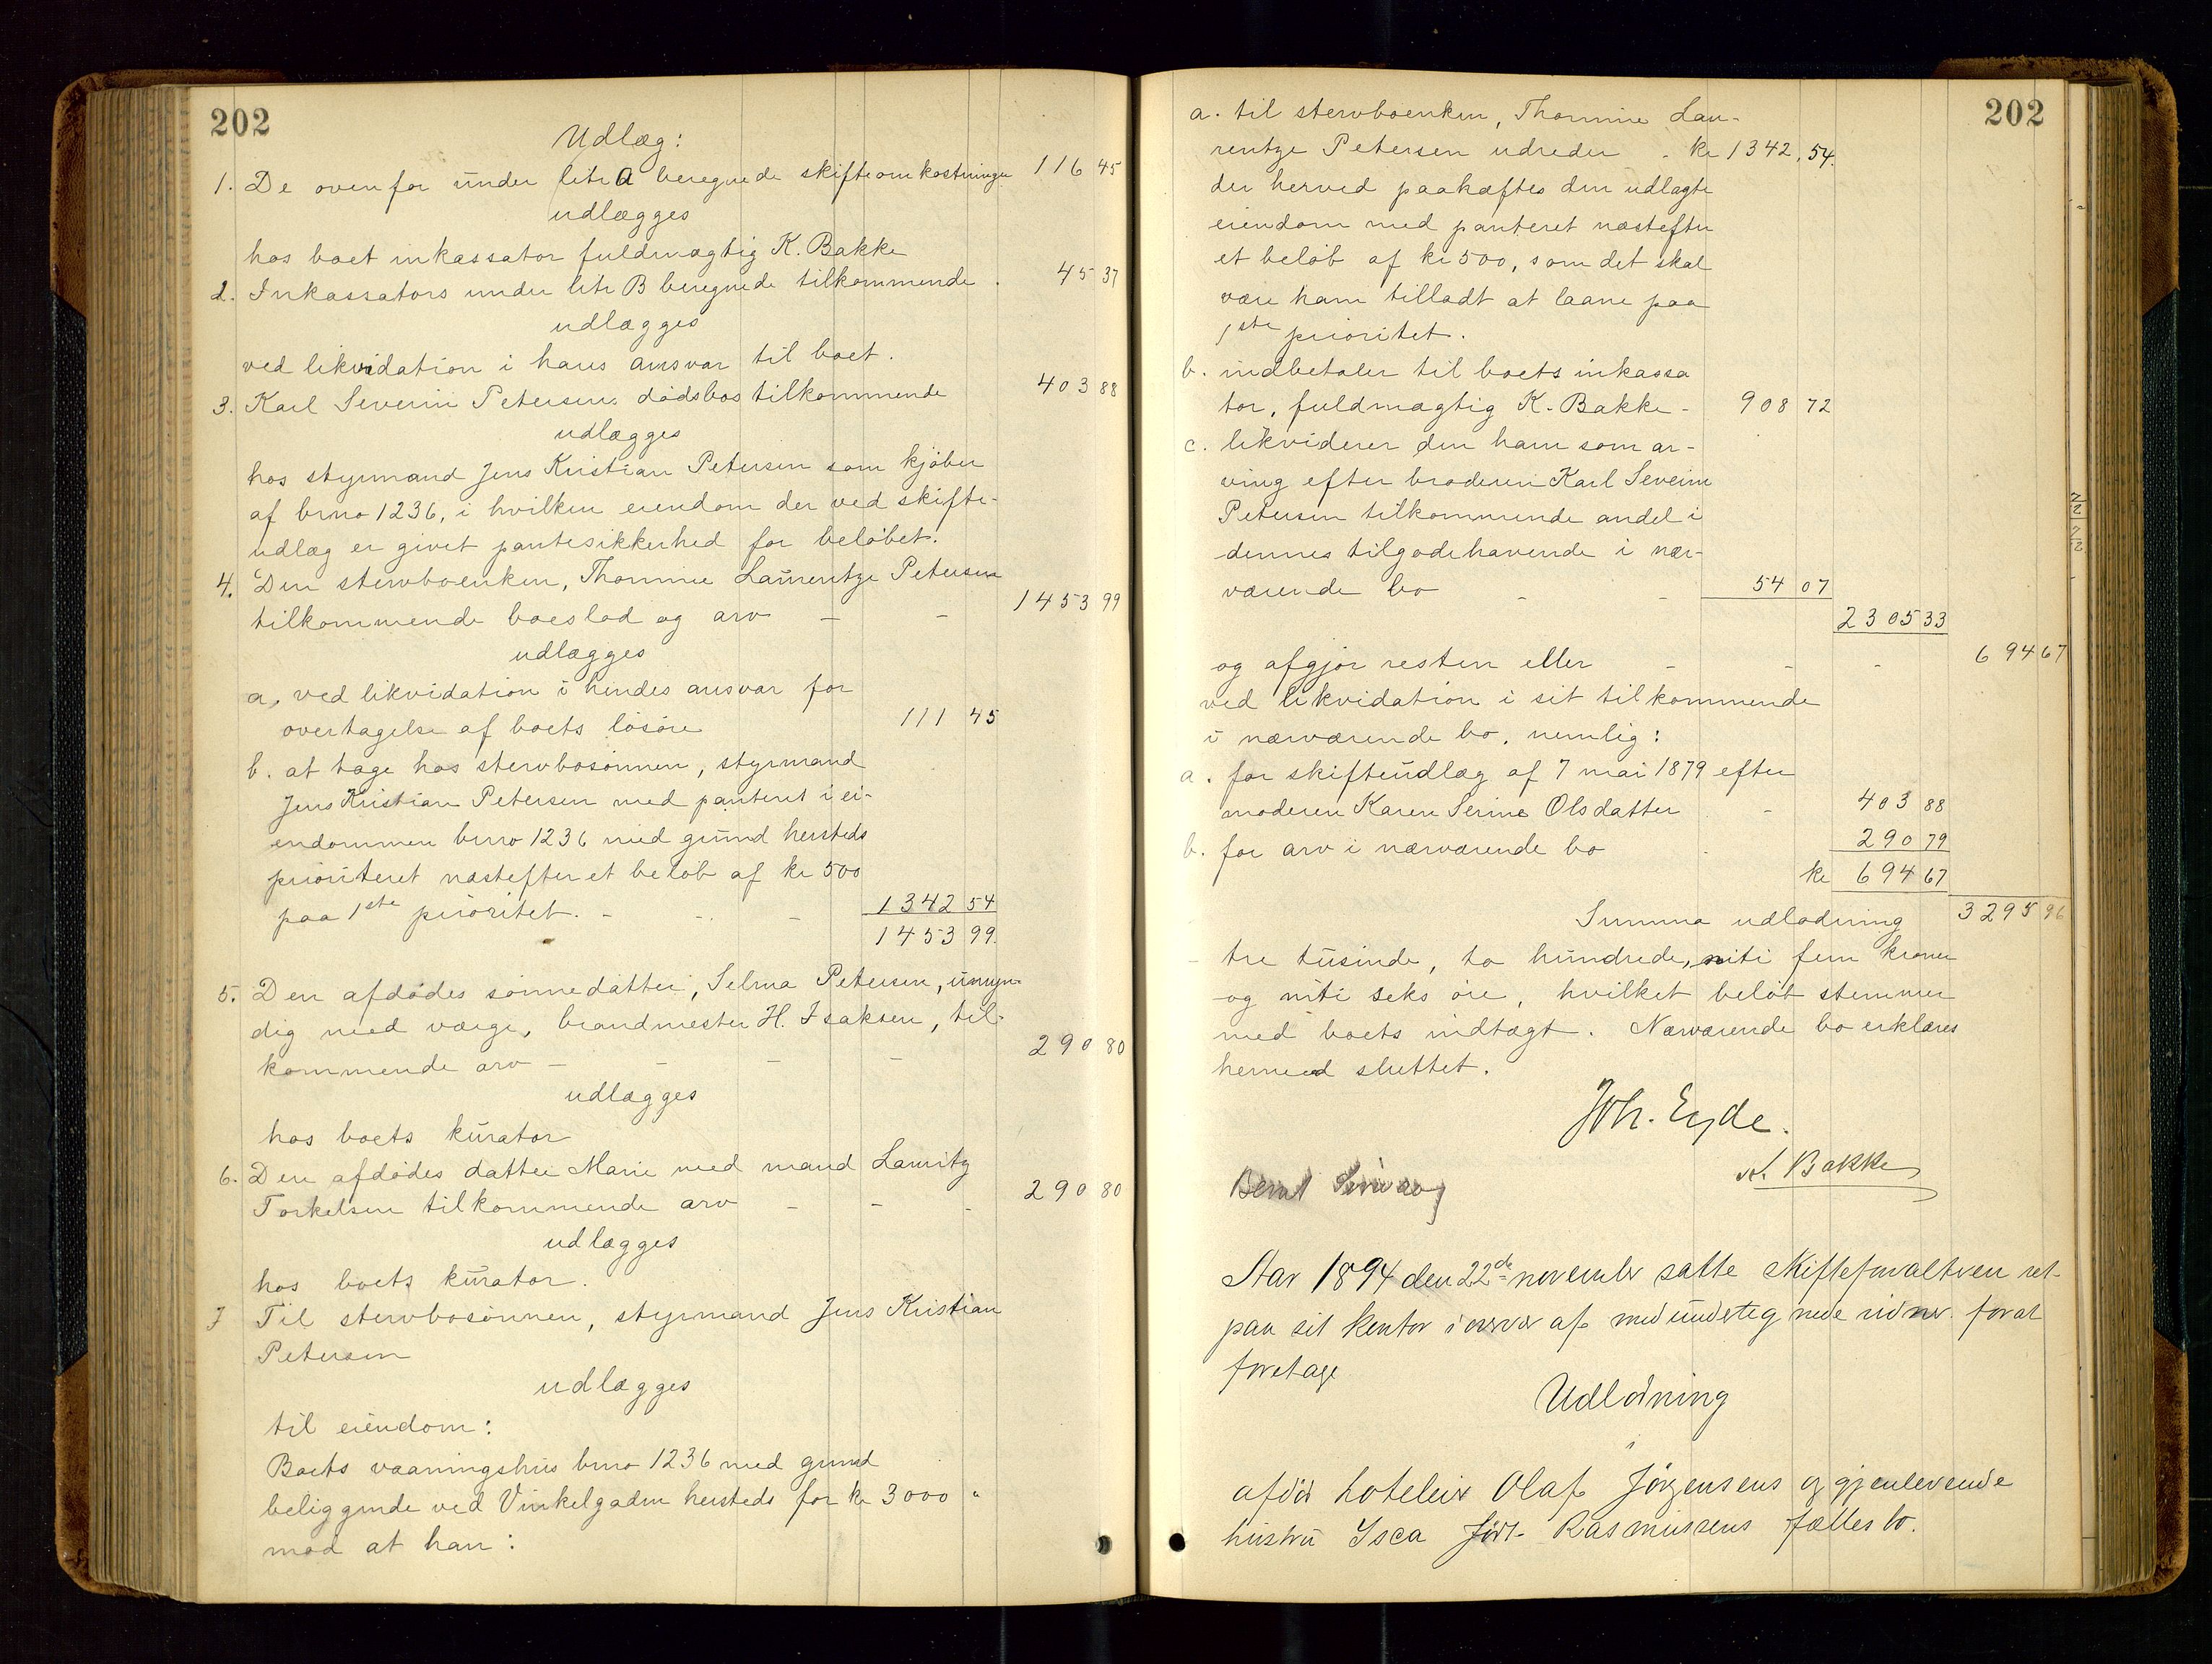 202
Udlæg:
1. De ovenfor under litr A beregnede skifteomkostninger 116 45
udlægges
hos boet inkassator fuldmægtig K. Bakke
2. Inkassators under litr B beregnede tilkommende . 45 37
udlægges
ved likvidation i hans ansvar til boet.
3. Karl Severin Petersens dødsbos tilkommende 403 88
udlægges
hos styrmand Jens Kristian Petersen som kjøber
af brno 1236, i hvilken eiendom der ved skifte-
udlæg er givet pantesikkerhed for beløbet.
4. Den stervboenken, Thomine Laurentze Petersen
tilkommende boeslod og arv - - 1453 99
udlægges
a. ved likvidation i hendes ansvar for
overtagelse af boets løsøre 111 45
b. at tage hos stervbosønnen, styrmand
Jens Kristian Petersen med panteret i ei-
endommen brno 1236 med grund hersteds
prioriteret næstefter et beløb af kr 500
paa 1ste prioritet. - - - 1342 54
1453 99.
5. Den afdødes sønnedatter, Selma Petersen, umyn-
dig med værge, brandmester H. Isaksen, til-
kommende arv - - - - 290 80
udlægges
hos boets kurator
6. Den afdødes datter Marie med mand Lauritz
Torkelsen tilkommende arv - - - 290 80
udlægges
hos boets kurator.
7 Til stervbosønnen, styrmand Jens Kristian
Petersen
udlægges
til eiendom:
Boets vaaningshus brno 1236 med grund
beliggende ved Vinkelgaden hersteds for kr 3000 "
mod at han:
202
a. til stervboenken, Thomine Lau-
rentze Petersen udreder - kr 1342,54.
der herved paahæftes den udlagte
eiendom med panteret næstefter
et beløb af kr 500, som det skal
være ham tilladt at laane paa
1ste prioritet.
b. indbetaler til boets inkassa
tor, fuldmægtig K. Bakke - 908 72
c. likviderer den ham som ar-
ving efter broderen Karl Severin
Petersen tilkommende andel i
dennes tilgodehavende i nær-
værende bo - - 54 07
2305 33
og afgjør resten eller - - - 694 67
ved likvidation i sit tilkommende
i nærværende bo, nemlig:
a. for skifteudlæg af 7 mai 1879 efter
moderen Karen Serine Olsdatter - 403 88
b. for arv i nærværende bo . 290 79
kr 694 67
Summa udlodning 3295 96
- tre tusinde, to hundrede, niti fem kroner
og niti seks øre, hvilket beløb stemmer
med boets indtægt. Nærværende bo erklæres
hermed sluttet.
Joh. Eyde.
K. Bakke
Bernt
Aar 1894 den 22de november satte skifteforvalteren ret
paa sit kontor i nærvær af medundertegnede vidner for at
foretage
Udlodning
i
afdød hoteleier Olaf Jørgensens og gjenlevende
hustru Isca født Rasmussens fællesbo.